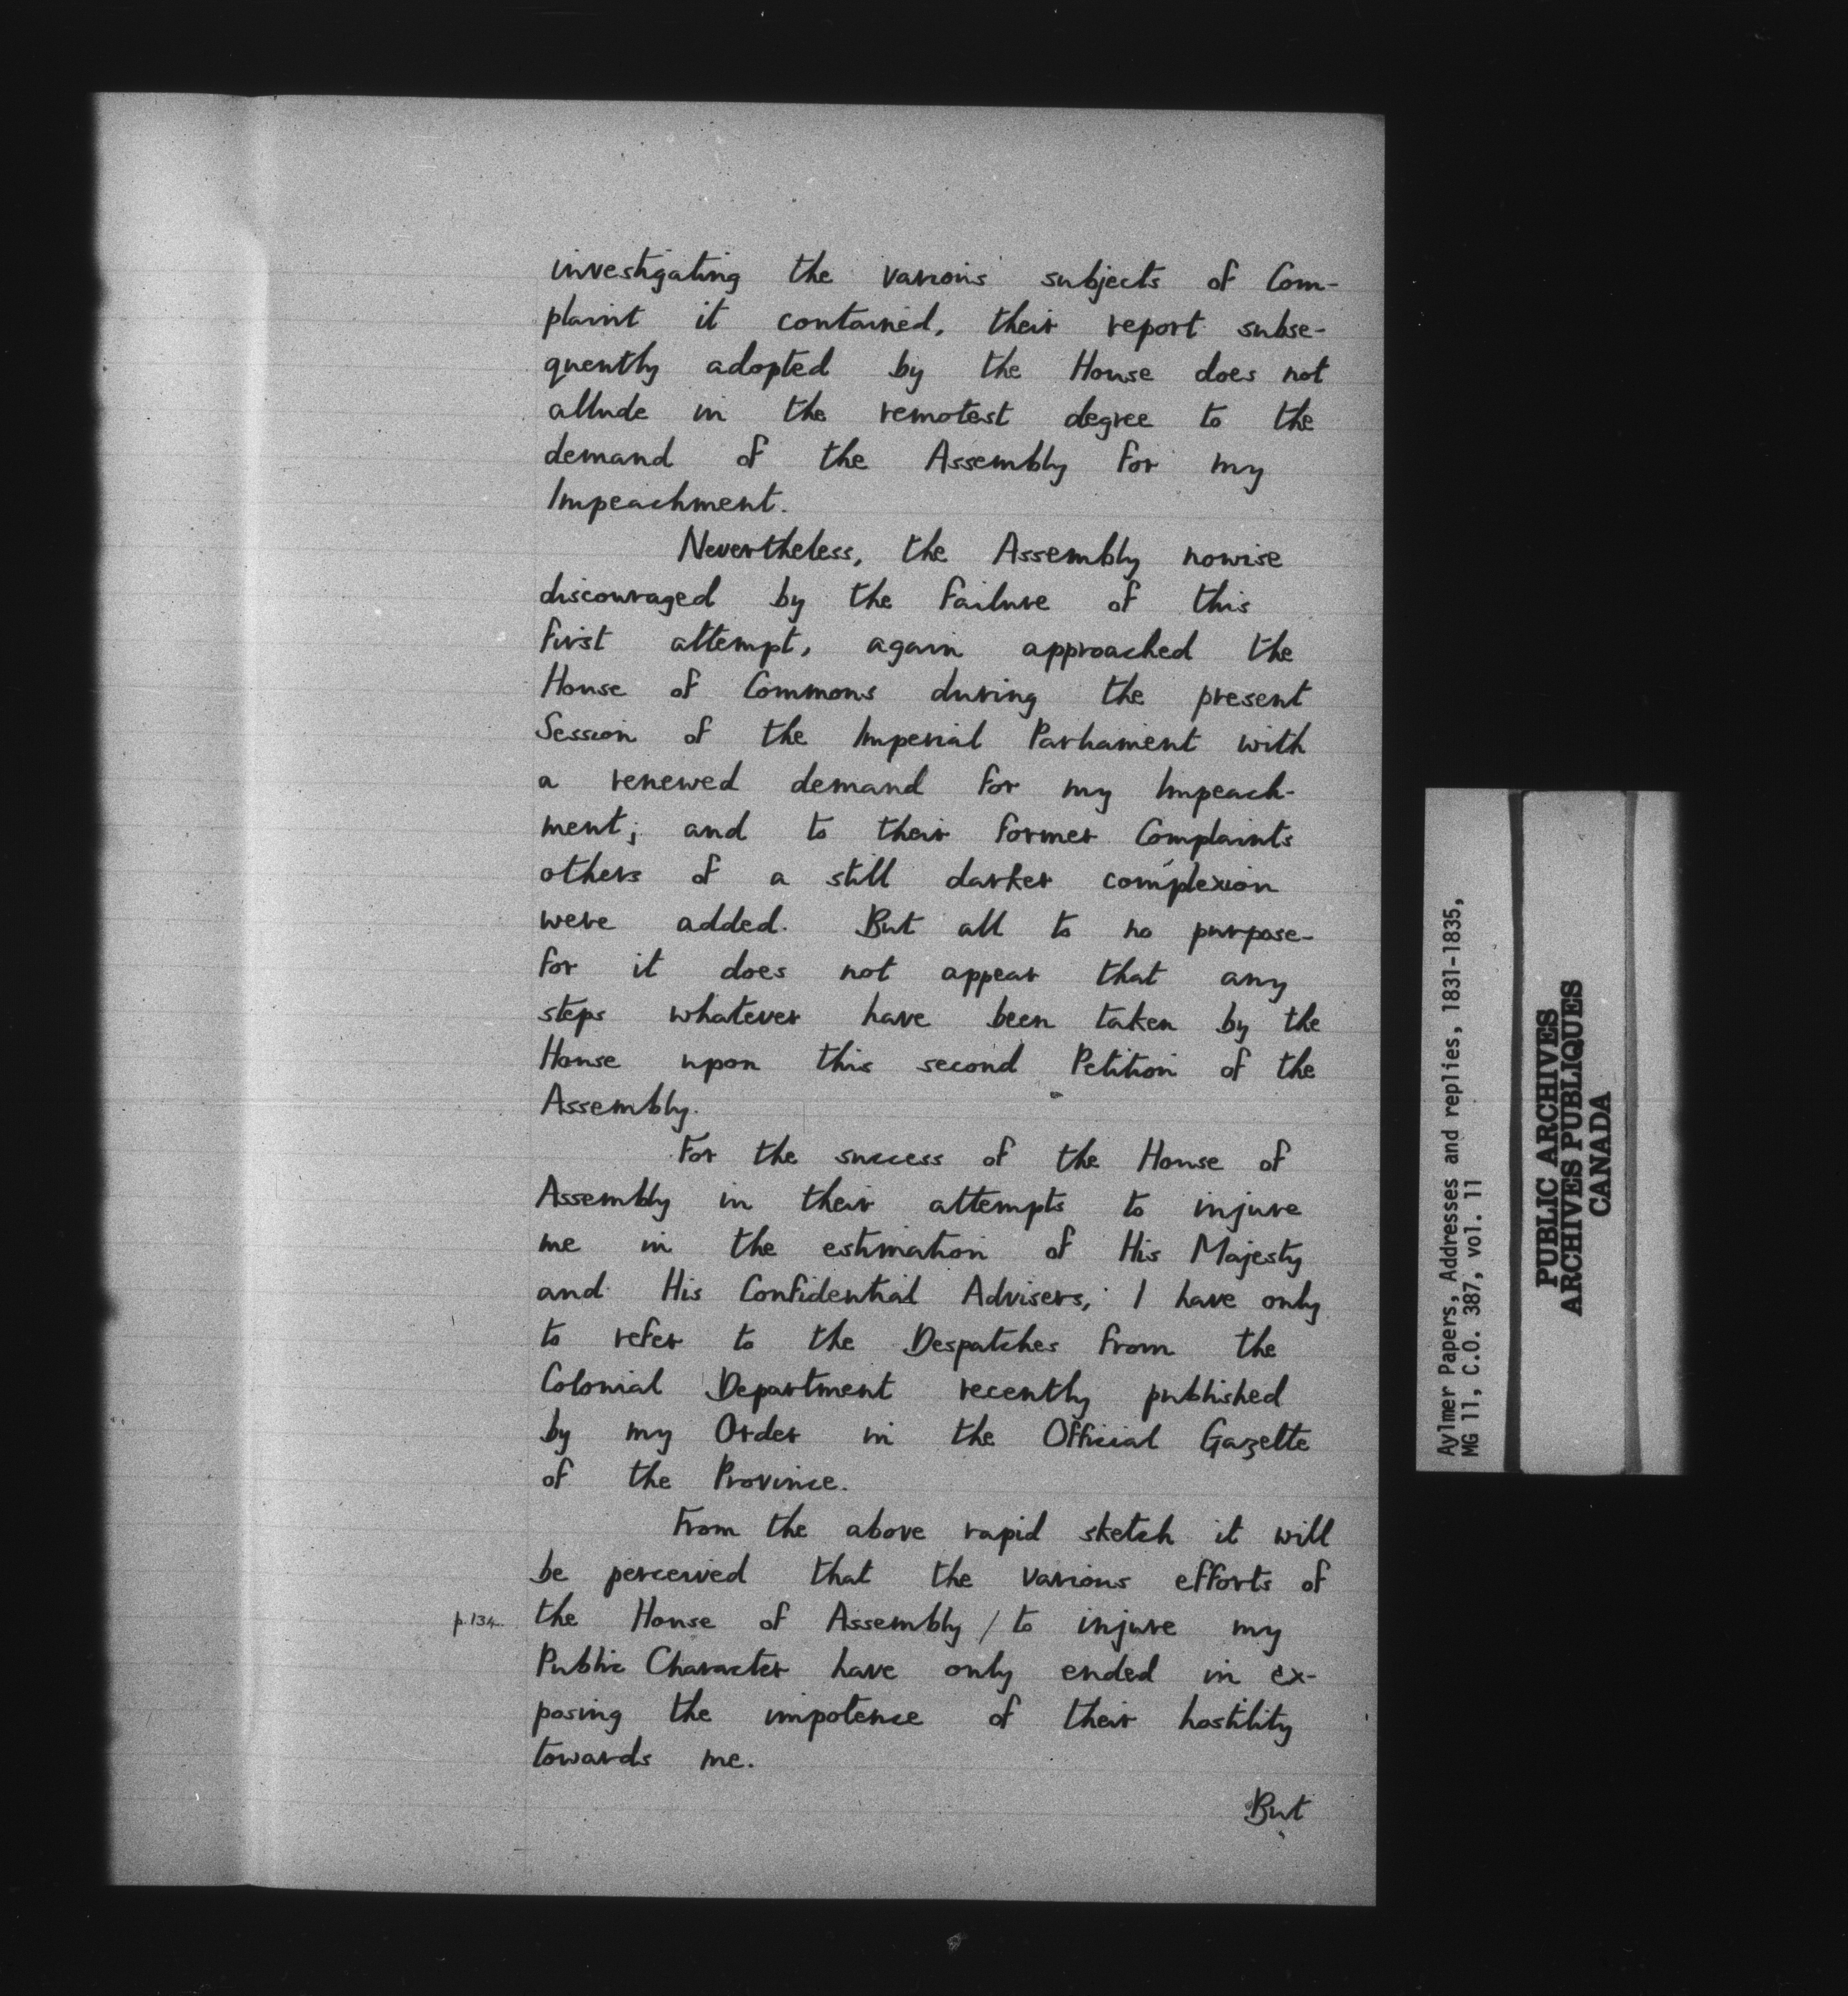 investigating the various subjects of Com-
plaint it contained, their report subse-
quently adopted by the House does not
allude in the remotest degree to the
demand of the Assembly for my
Impeachment.
Nevertheless, the Assembly nowise
discouraged by the failure of this
first attempt, again approached the
House of Commons during the present
Session of the Imperial Parliament with
a renewed demand for my Impeach-
ment; and to their former Complaints
others of a still darker complexion
were added. But all to no purpose-
for it does not appear that any
steps whatever have been taken by the
House upon this second Petition of the
Assembly.
For the success of the House of
Assembly in their attempts to injure
me in the estimation of His Majesty
and His Confidential Advisers, I have only
to refer to the Despatches from the
Colonial Department recently published
by my Order in the Official Gazette
of the Province.
From the above rapid sketch it will
be perceived that the various efforts of
p.134. the House of Assembly / to injure my
Public Character have only ended in ex-
posing the impotence of their hostility
towards me.
But
Aylmer Papers, Addresses and replies, 1831-1835,
MG 11, C.O. 387, vol. 11
PUBLIC ARCHIVES
ARCHIVES PUBLIQUES
CANADA